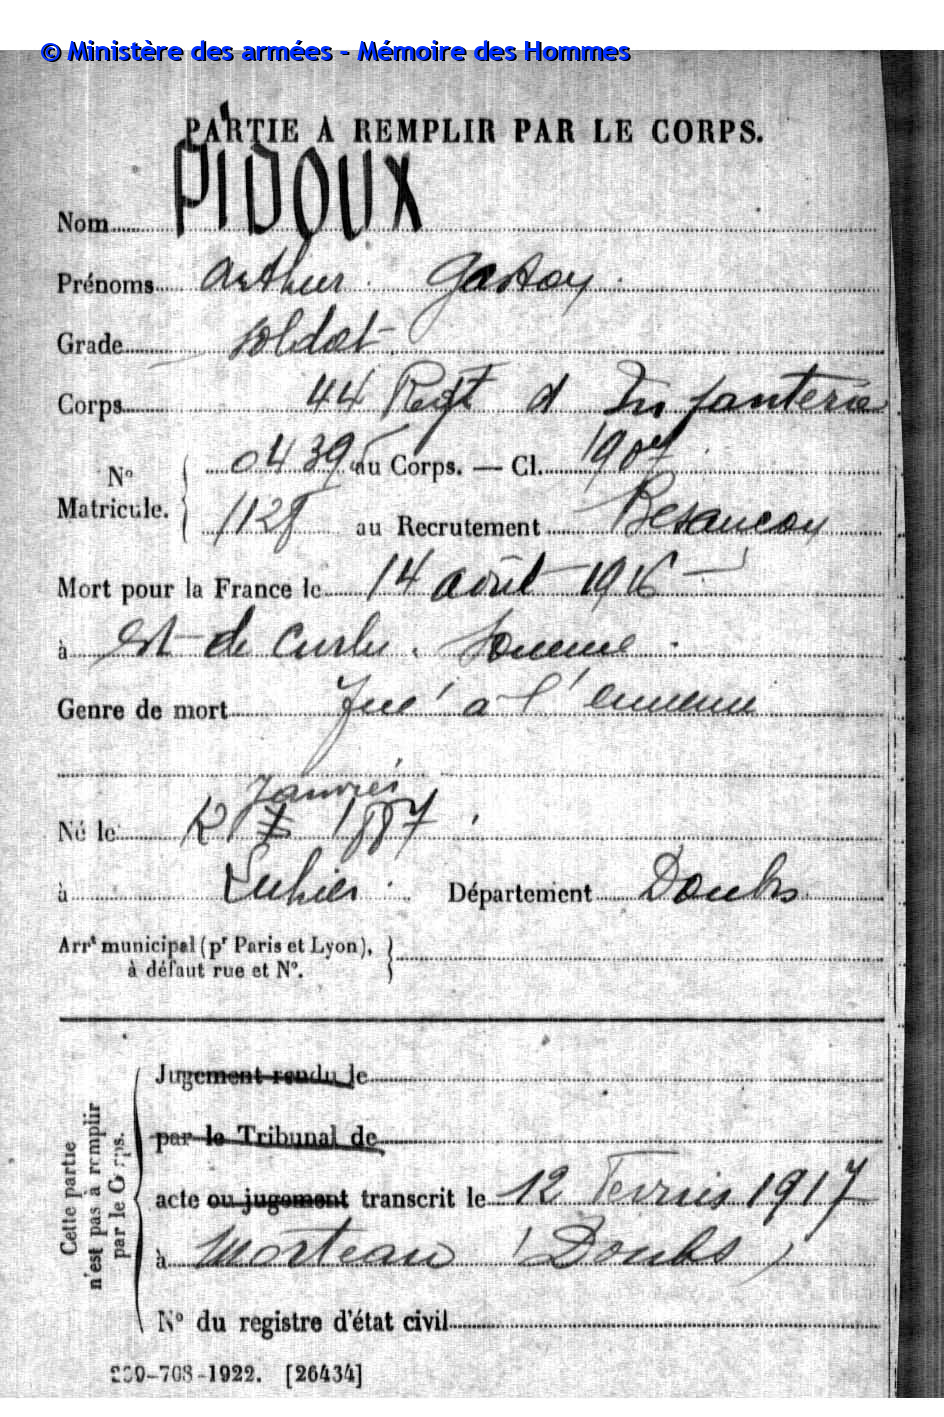 © Ministère des armées - Mémoire des Hommes
PARTIE À REMPLIR PAR LE CORPS.
Nom PIDOUX
Prénoms Arthur Gaston
Grade soldat
Corps 44 Regt d'Infanterie
N° Matricule. 04395 au Corps. — Cl. 1907
1128 au Recrutement Besançon
Mort pour la France le 14 août 1916
à Est de Curlu. Somme
Genre de mort Tué à l'ennemi
Janvier
Né le 12 1887
à Luhier Département Doubs
Arrt municipal (pr Paris et Lyon),
à défaut rue et N°.
Cette partie
n'est pas à remplir
par le Corps.
Jugement rendu le
par le Tribunal de
acte ou jugement transcrit le 12 Février 1917
à Morteau (Doubs)
N° du registre d'état civil
-708-1922. [26434]